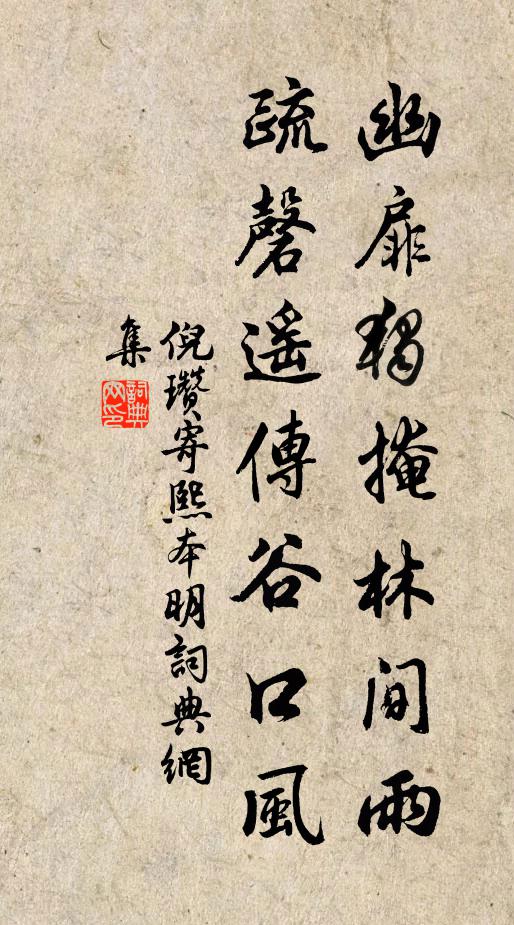 幽扉獨掩林間雨
疏磬遥傳谷口風
倪瓚寄熙本明詞典網
集
詞典
网印